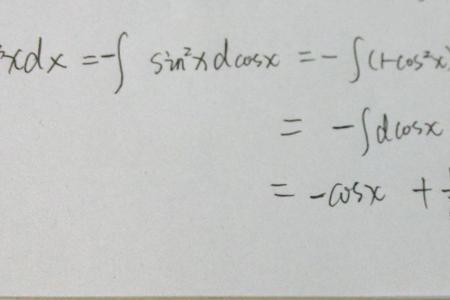 ²xdx = -∫ sin²x dcosx = - ∫(1-cos²x)
= -∫dcosx
= -cosx +